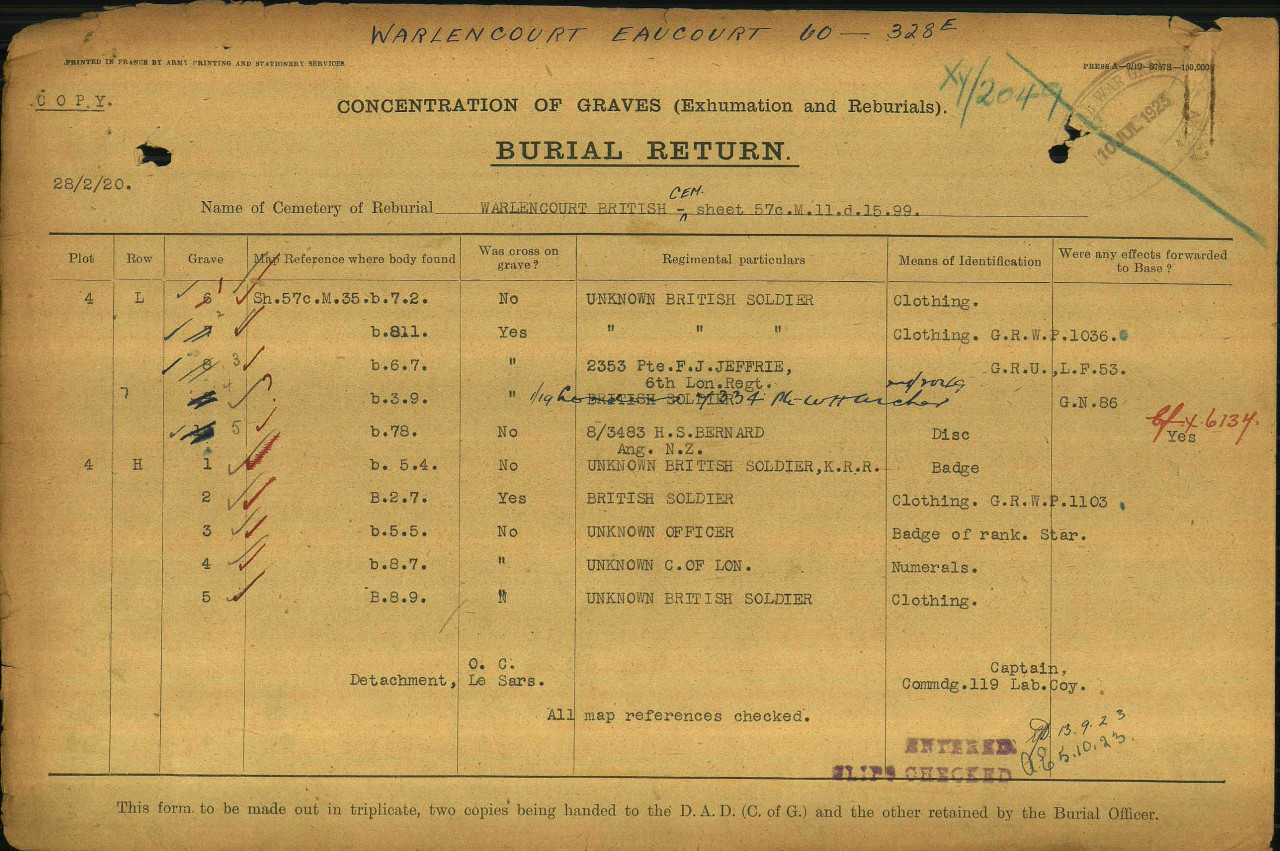 WARLENCOURT EAUCOURT 60 — 328E
PRINTED IN FRANCE BY ARMY PRINTING AND STATIONERY SERVICES.
PRESS A—9/19—9787S—150,000
COPY.
CONCENTRATION OF GRAVES (Exhumation and Reburials).
XY/2049
10 JUL 1923
BURIAL RETURN.
28/2/20.
CEM.
Name of Cemetery of Reburial WARLENCOURT BRITISH - sheet 57c.M.11.d.15.99.
Plot Row Grave Map Reference where body found Was cross on grave? Regimental particulars Means of Identification Were any effects forwarded to Base?
4 L 6 1 Sh.57c.M.35.b.7.2. No UNKNOWN BRITISH SOLDIER Clothing.
7 2 b.811. Yes " " " Clothing. G.R.W.P.1036.
8 3 b.6.7. " 2353 Pte.F.J.JEFFRIE, G.R.U.,L.F.53.
6th Lon.Regt.
7 4 b.3.9. " 1/19 BRITISH SOLDIER G.N.86
5 b.78. No 8/3483 H.S.BERNARD Disc Yes 6134.
Ang. N.Z.
4 H 1 b. 5.4. No UNKNOWN BRITISH SOLDIER,K.R.R. Badge
2 B.2.7. Yes BRITISH SOLDIER Clothing. G.R.W.P.1103
3 b.5.5. No UNKNOWN OFFICER Badge of rank. Star.
4 b.8.7. " UNKNOWN C.OF LON. Numerals.
5 B.8.9. " UNKNOWN BRITISH SOLDIER Clothing.
O. C. Captain,
Detachment, Le Sars. Commdg.119 Lab.Coy.
All map references checked.
13.9.23
ENTERED
5.10.23.
SLIPS CHECKED
This form to be made out in triplicate, two copies being handed to the D.A.D. (C. of G.) and the other retained by the Burial Officer.